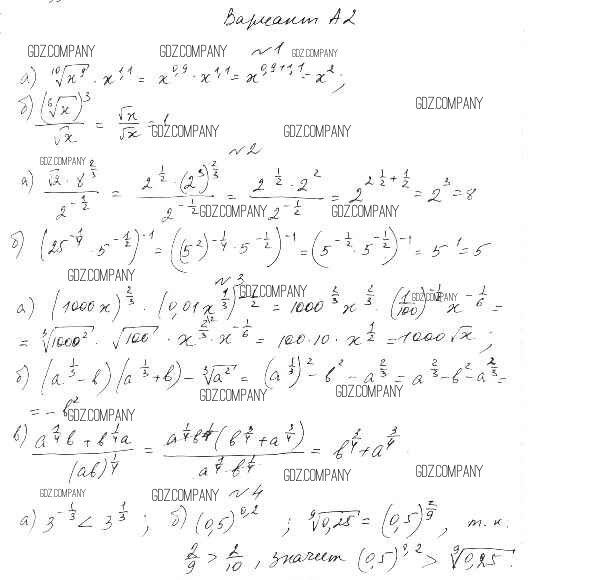 Вариант А2
GDZ.COMPANY GDZ.COMPANY №1 GDZ.COMPANY
а) ¹⁰√x⁹ · x^{1,1} = x^{0,9} · x^{1,1} = x^{0,9+1,1} = x²;
GDZ.COMPANY
б) (⁶√x)³/√x = √x/√x = 1
GDZ.COMPANY GDZ.COMPANY
№2
GDZ.COMPANY
а) √2 · 8^{2/3}/2^{-1/2} = 2^{1/2} · (2³)^{2/3}/2^{-1/2} = 2^{1/2} · 2²/2^{-1/2} = 2^{2 1/2 + 1/2} = 2³ = 8
GDZ.COMPANY GDZ.COMPANY
б) (25^{-1/4} · 5^{-1/2})^{-1} = ((5²)^{-1/4} · 5^{-1/2})^{-1} = (5^{-1/2} · 5^{-1/2})^{-1} = 5¹ = 5
GDZ.COMPANY №3
GDZ.COMPANY GDZ.COMPANY
а) (1000x)^{2/3} · (0,01x^{1/3})^{-1/2} = 1000^{2/3} x^{2/3} · (1/100)^{-1/2} x^{-1/6} =
= ³√1000² · √100 · x^{2/3} · x^{-1/6} = 100·10 · x^{1/2} = 1000√x;
б) (a^{1/3} - b)(a^{1/3} + b) - ³√a² = (a^{1/3})² - b² - a^{2/3} = a^{2/3} - b² - a^{2/3} =
GDZ.COMPANY GDZ.COMPANY
= -b²
GDZ.COMPANY
в) a^{1/4}b + b^{1/4}a/(ab)^{1/4} = a^{1/4}b^{1/4}(b^{3/4} + a^{3/4})/a^{1/4} · b^{1/4} = b^{3/4} + a^{3/4}
GDZ.COMPANY GDZ.COMPANY
GDZ.COMPANY GDZ.COMPANY №4
а) 3^{-1/3} < 3^{1/3}; б) (0,5)^{0,2}; ⁹√0,25 = (0,5)^{2/9}, т.к.
2/9 > 2/10, значит (0,5)^{0,2} > ⁹√0,25.